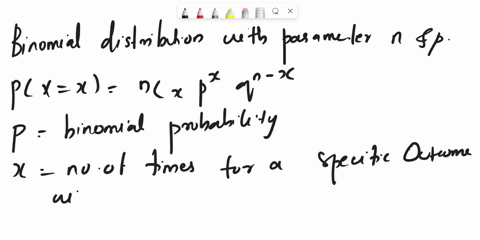 Binomial distribution with parameter n & p.
P(X=x) = nCx p^x q^n-x
P = binomial probability
x = no. of times for a specific Outcome
wi